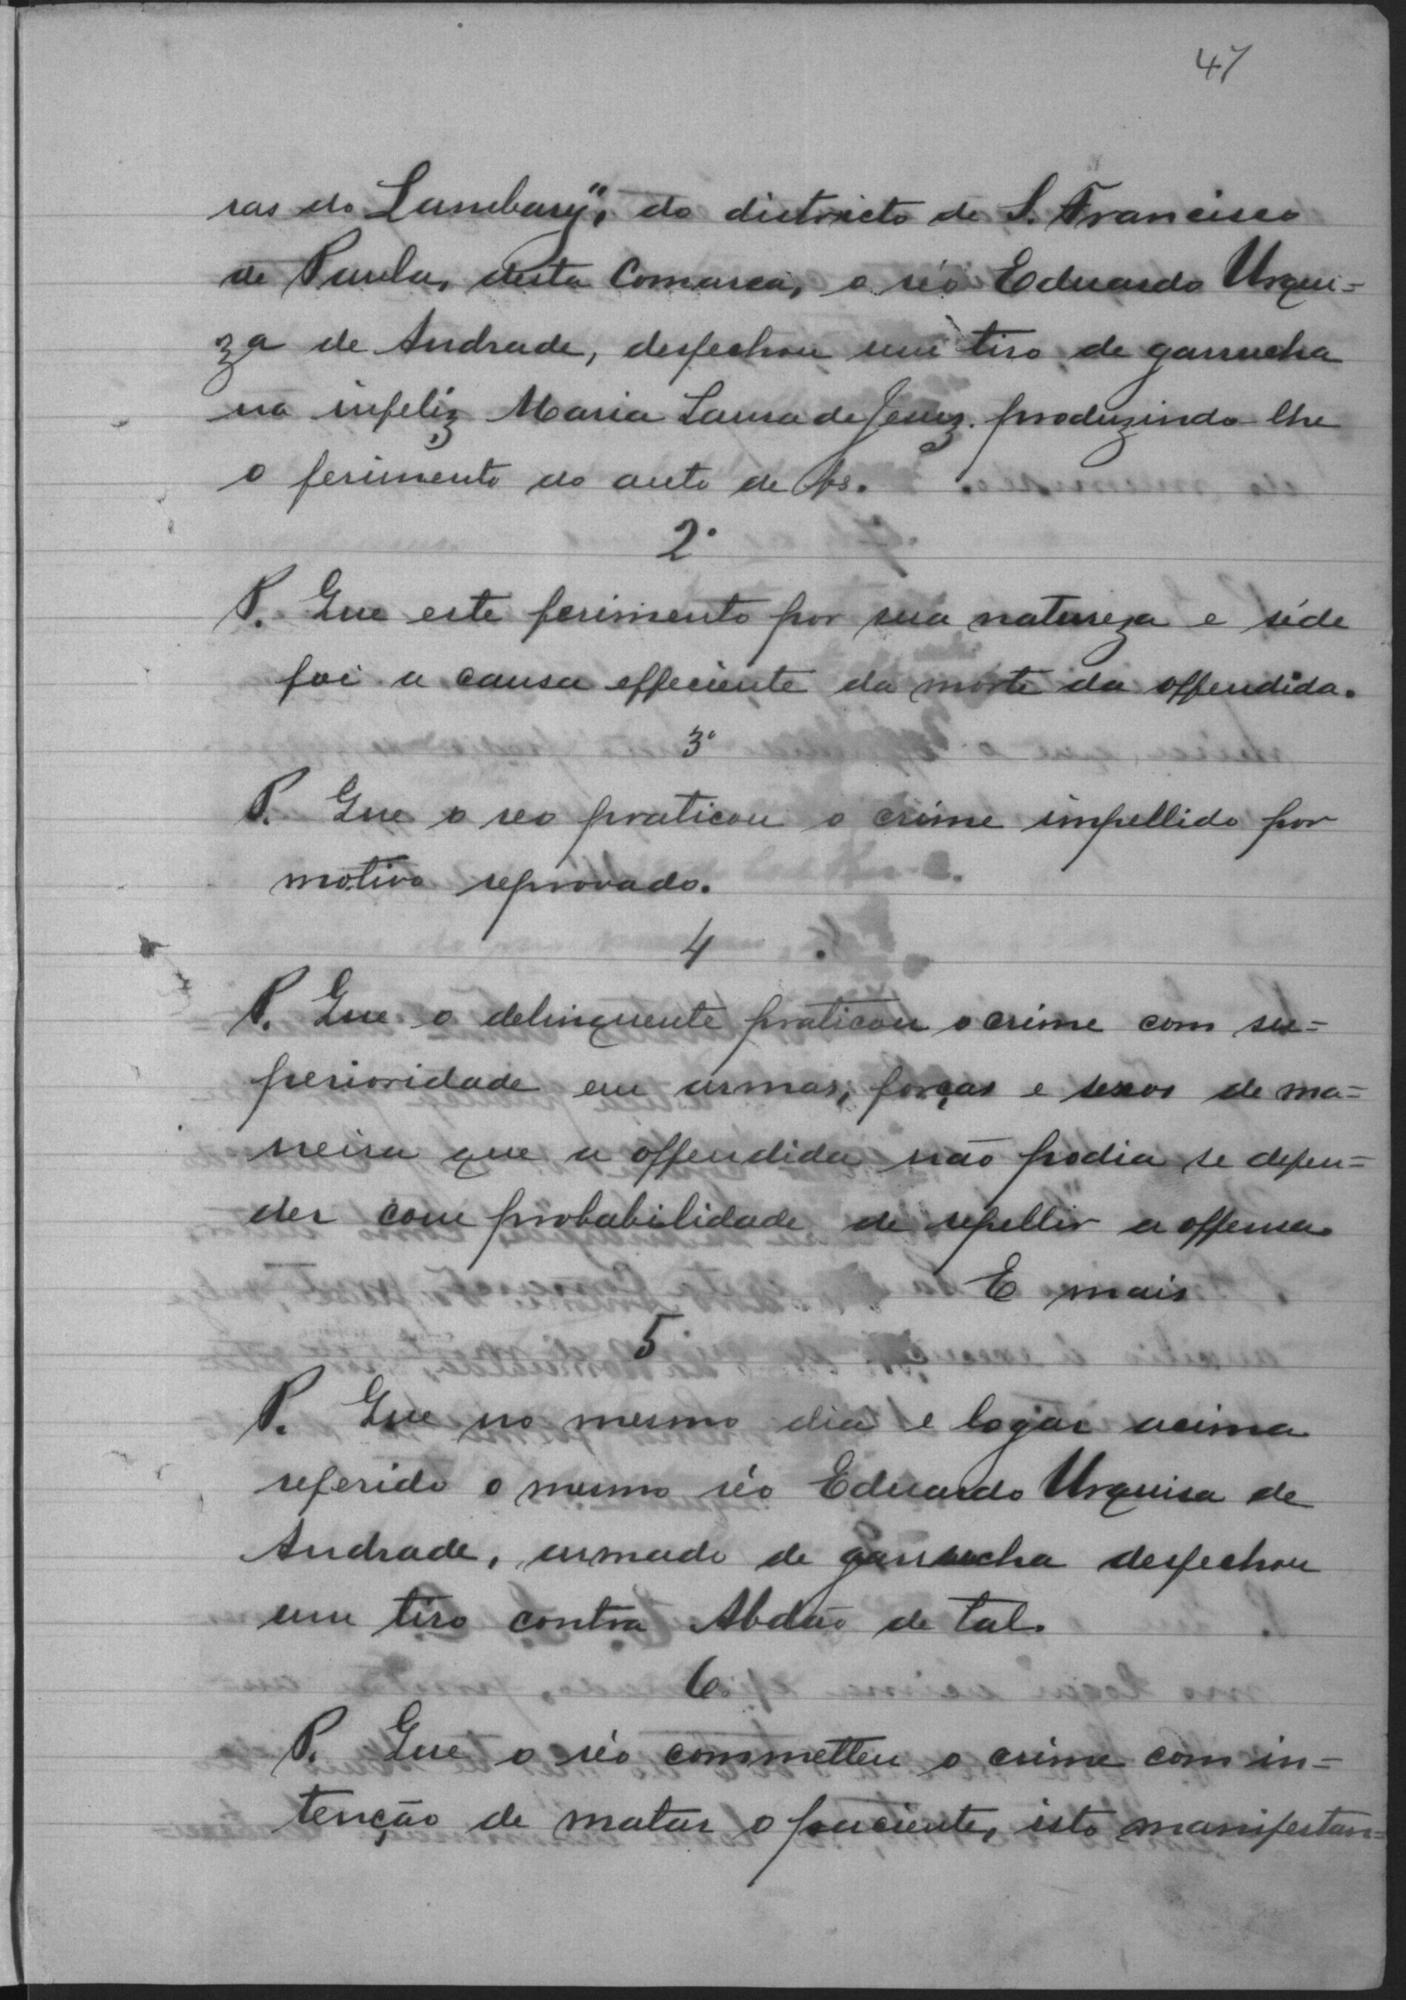 47
ras do Lambary", do districto de S. Francisco
de Paula, desta Comarca, o réo Eduardo Urqui=
za de Andrade, desfechou um tiro de garrucha
na infeliz Maria Laura de Jesuz. produzindo-lhe
o ferimento do auto de fs.
2º
P. Que este ferimento por sua natureza e séde
foi a causa effeciente da morte da offendida.
3º
P. Que o reo praticou o crime impellido por
motivo reprovado.
4
P. Que o delinquente praticou o crime com su=
perioridade em armas, forças e sexos de ma=
neira que a offendida não podia se defen=
der com probabilidade de repellir a offensa.
E mais
5º
P. Que no mesmo dia e logar acima
referido o mesmo réo Eduardo Urquisa de
Andrade, armado de garrucha desfechou
um tiro contra Abdão de tal.
6º
P. Que o réo commetteu o crime com in=
tenção de matar o paciente, isto manifestan=